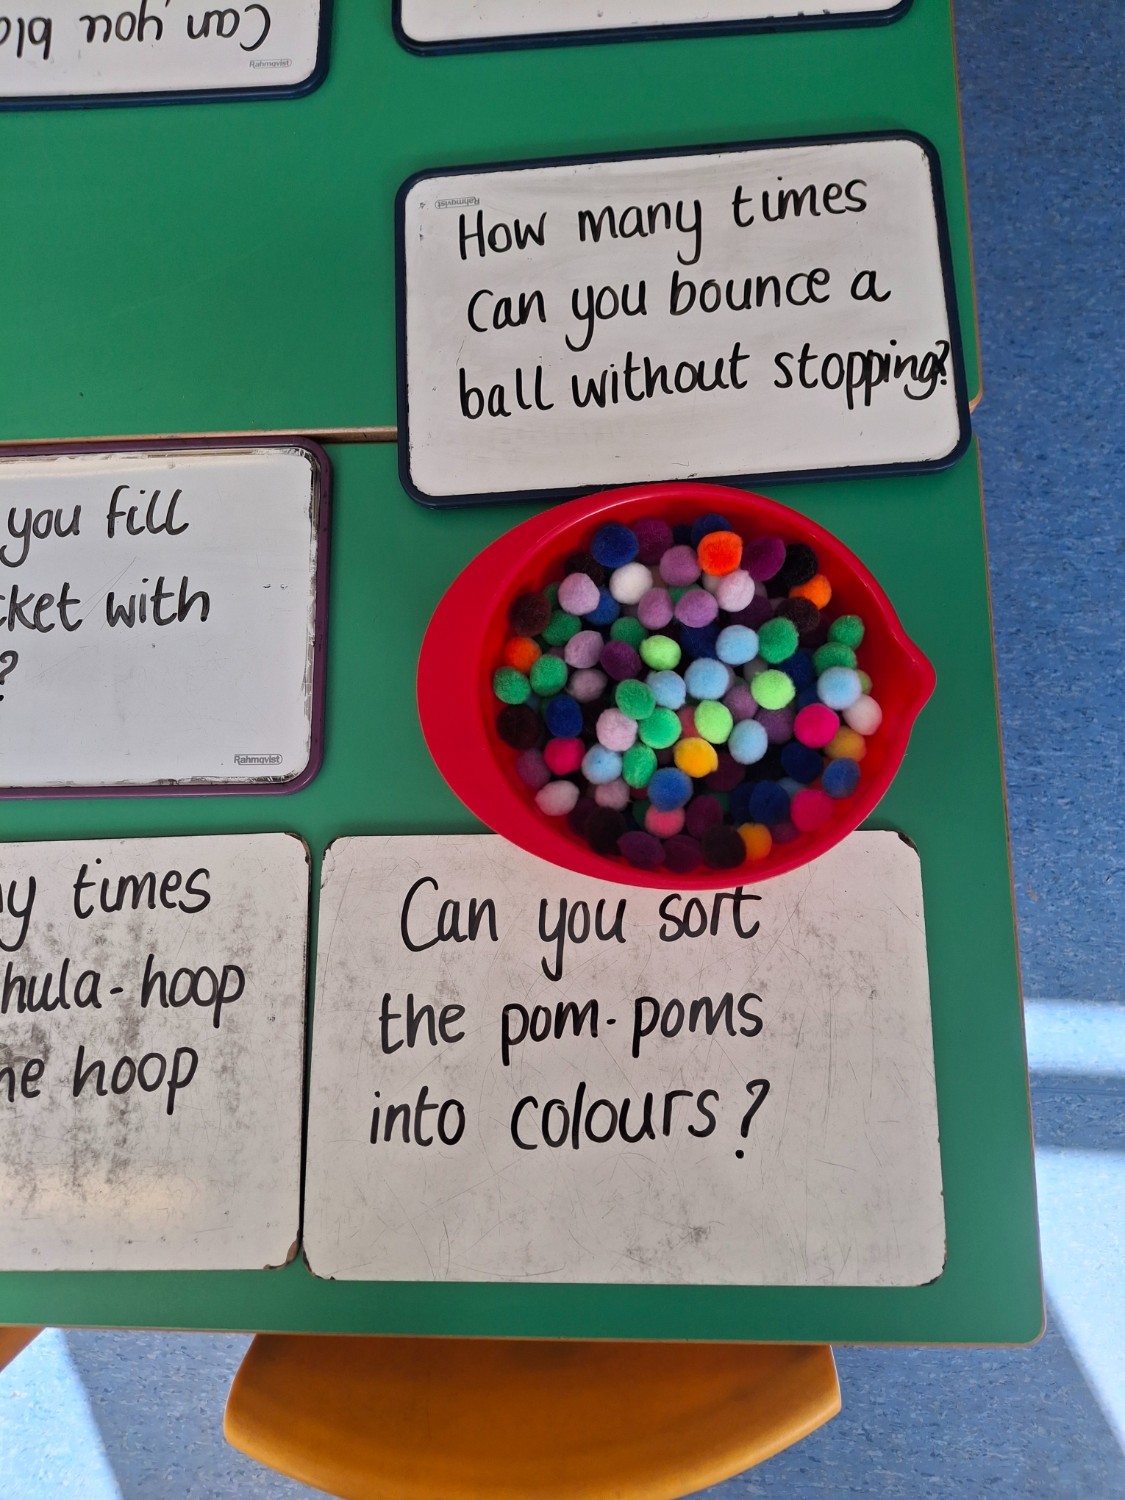 Can you
Rahmqvist
Rahmqvist
How many times
can you bounce a
ball without stopping?
you fill
with
?
Rahmqvist
times
hula-hoop
hoop
Can you sort
the pom-poms
into colours?